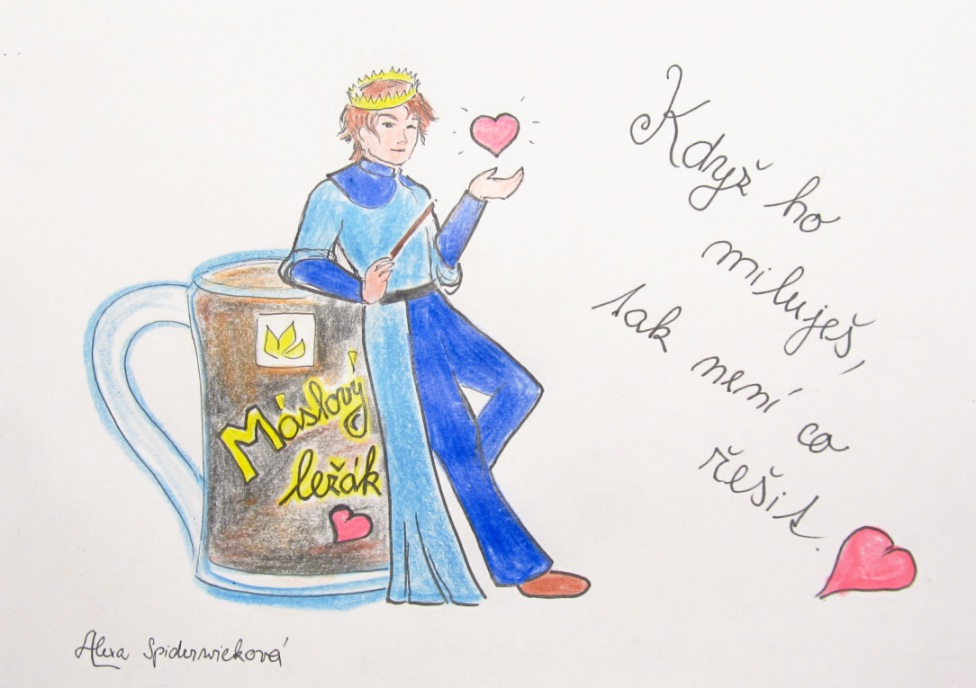 Když ho
miluješ,
tak není co
řešit.
Máslový
ležák
Alexa Spiderwieková